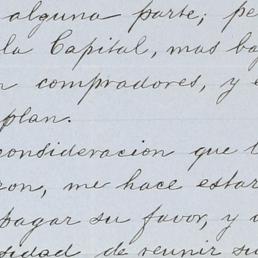 alguna parte; pe
la Capital, mas ba
n compradores, y e
plan.
consideracion que l
ron, me hace estar
pagar su favor, y
sidad de reunir su